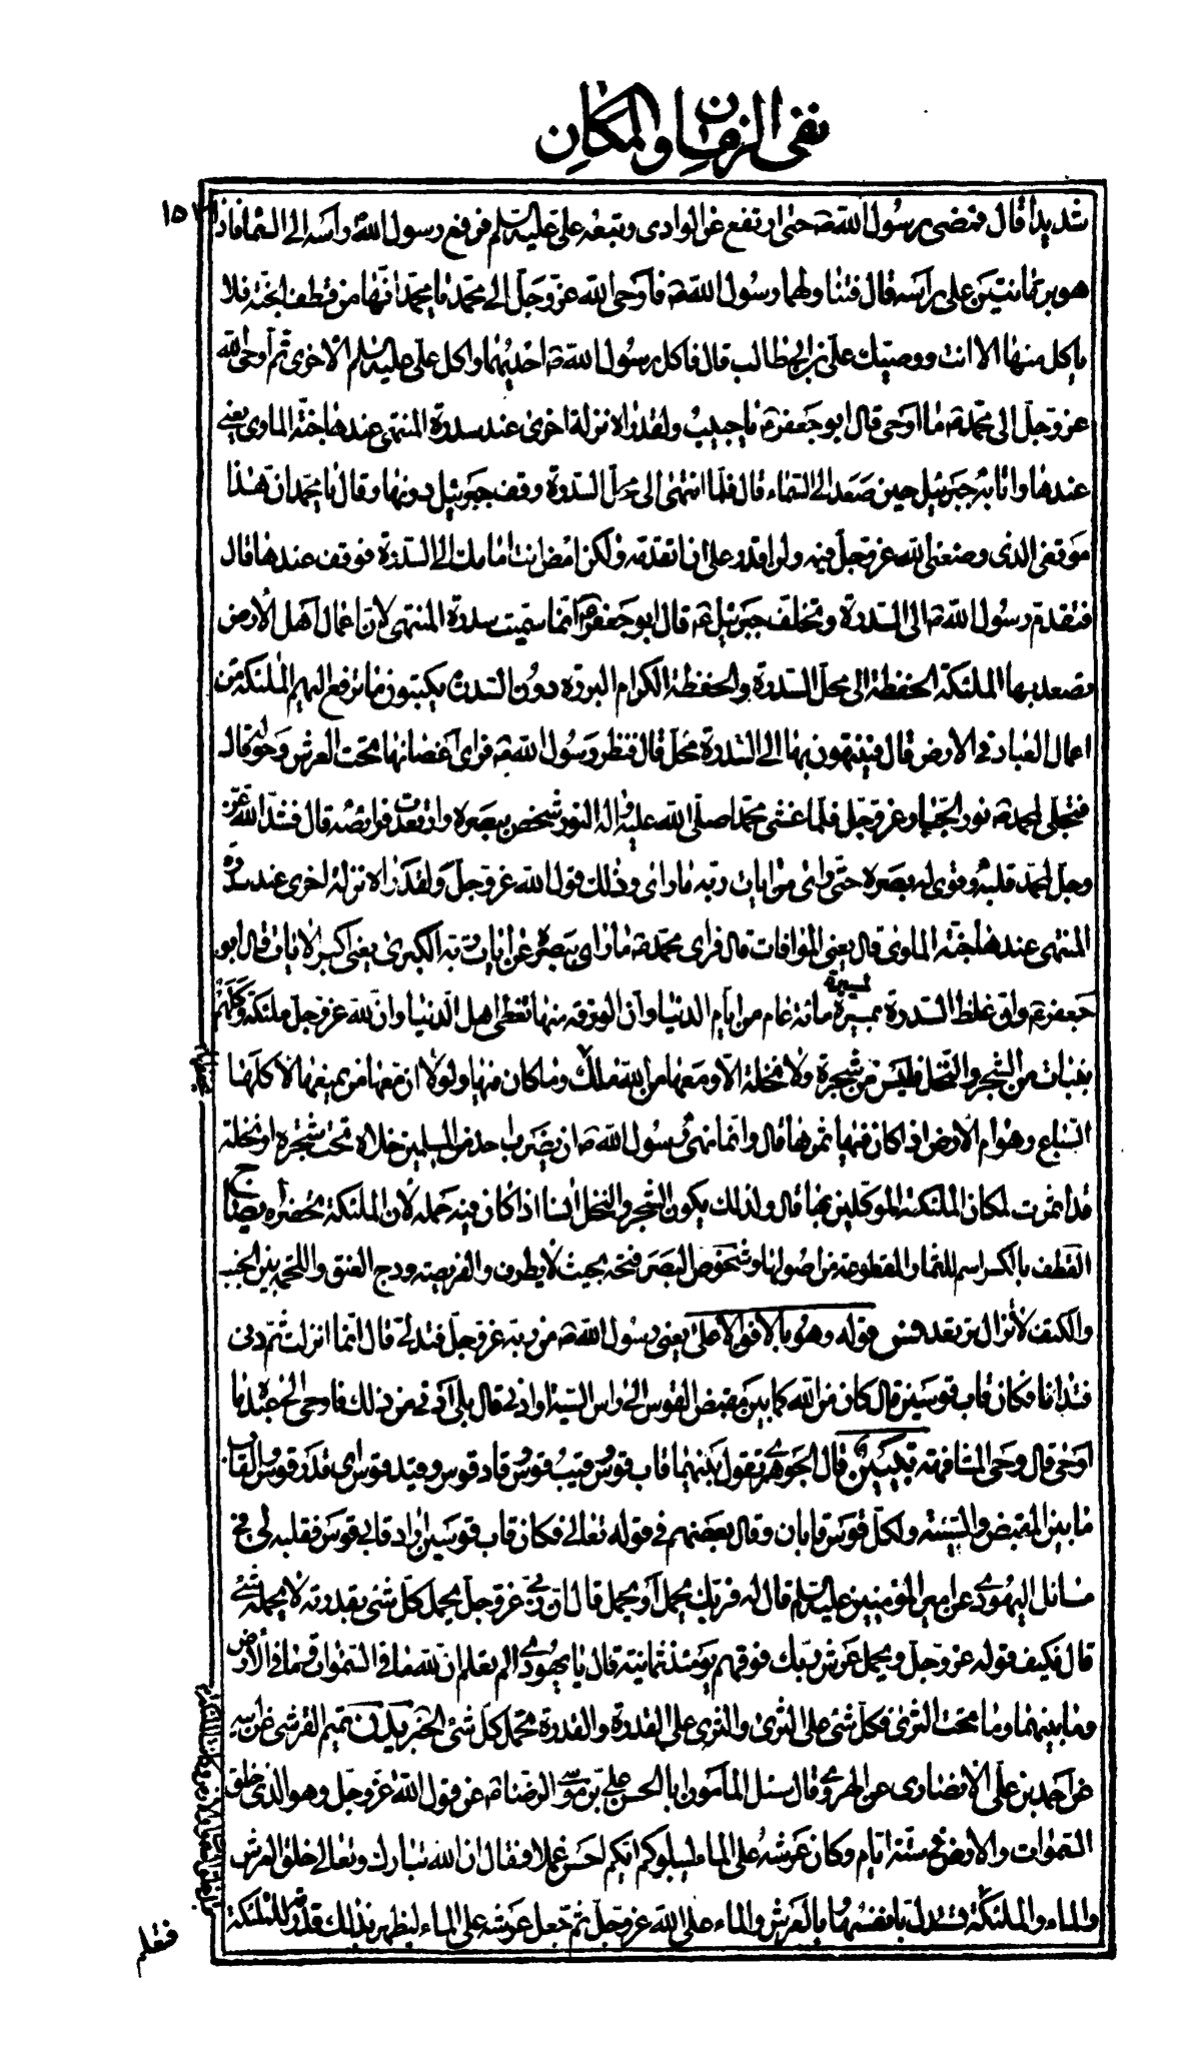 نفى الزمان والمكان
شديدا قال فمضى رسول الله ص حتى ارتفع عن الوادى وتبعه على عليه السلم فرفع رسول الله راسه الى السما فاذا
هو برمانتين على راسه قال فتناولهما رسول الله ص فاوحى الله عز وجل الى محمد يا محمد انها من قطف الجنة فلا
ياكل منها الا انت ووصيك على بن ابى طالب قال فاكل رسول الله ص احديهما واكل على عليه السلم الاخرى ثم اوحى الله
عز وجل الى محمد ص ما اوحى قال ابو جعفر ع يا حبيب ولقد راه نزلة اخرى عند سدرة المنتهى عندها جنة الماوى يعنى
عندها وافا به جبرئيل حين صعد الى السماء قال فلما انتهى الى محل السدرة وقف جبرئيل دونها وقال يا محمد ان هذا
موقفى الذى وضعنى الله عز وجل فيه ولن اقدر على ان اتقدمه ولكن امض انت امامك الى السدرة فوقف عندها قال
فتقدم رسول الله ص الى السدرة وتخلف جبرئيل ع قال ابو جعفر ع انما سميت سدرة المنتهى لان اعمال اهل الارض
تصعد بها الملئكة الحفظة الى محل السدرة والحفظة الكرام البررة دون السدرة يكتبون ما ترفع اليهم الملئكة من
اعمال العباد فى الارض قال فينتهون بها الى السدرة محل قال فنظر رسول الله ص فراى اغصانها تحت العرش وحوله قال
فتجلى لمحمد ص نور الجبار عز وجل فلما غشى محمدا صلى الله عليه واله النور شخص ببصره وارتعدت فرائصه قال فشد الله عز
وجل لمحمد قلبه وقوى له بصره حتى راى من ايات ربه ما راى وذلك قول الله عز وجل ولقد راه نزلة اخرى عند سدرة
المنتهى عندها جنة الماوى قال يعنى الموافات قال فراى محمد ص ما راى ببصره من ايات ربه الكبرى يعنى اكبر الايات قال ابو
جعفر ع وان غلظ السدرة بمسيرة مائة عام من ايام الدنيا وان الورقة منها تغطى اهل الدنيا وان لله عز وجل ملئكة وكلهم
لمسيرة
بنبات من الشجر والنخل فليس من شجرة ولا نخلة الا ومعها من الله ملك وما كان فيها ولولا ان معها من يمنعها لاكلها
السباع وهوام الارض اذا كان فيها ثمرها قال وانما نهى رسول الله ص ان يضرب احد من المسلمين خلاه تحت شجرة او نخلة
قد اثمرت لمكان الملئكة الموكلين بها قال ولذلك يكون الشجر والنخل انسا اذا كان فيه حمله لان الملئكة تحضره ايضا ج
القطف بالكسر اسم للثمار المقطوعة من اصولها وشخوص البصر فتحه بحيث لا يطرف والفريصة ودج العنق واللحمة بين الجنب
والكتف لا تزال ترتعد فس قوله وهو بالافق الاعلى يعنى رسول الله ص من ربه عز وجل فتدلى قال انما انزلت ثم دنى
فتدانا فكان قاب قوسين قال كان من الله كما بين مقبض القوس الى راس السية او ادنى قال بلى ادنى من ذلك فاوحى الى عبده ما
اوحى قال وحى المشافهة تبيين قال الجوهرى تقول بينهما قاب قوس وقيب قوس وقاد قوس وقيد قوس اى قدر قوس والقاب
ما بين المقبض والسية ولكل قوس قابان وقال بعضهم فى قوله تعالى فكان قاب قوسين اراد قابى قوس فقلبه
مسائل اليهودى عن امير المؤمنين عليه السلم قال له فربك يحمل او يحمل قال ان ربى عز وجل يحمل كل شئ بقدرته لا يحمله شئ
قال فكيف قوله عز وجل ويحمل عرش ربك فوقهم يومئذ ثمانية قال يا يهودى الم تعلم ان لله ما فى السموات وما فى الارض
وما بينهما وما تحت الثرى فكل شئ على الثرى والثرى على القدرة والقدرة تحمل كل شئ الخبر يد ن تميم القرشى عن ابيه
عن احمد بن على الانصارى عن الهروى قال سئل المامون ابا الحسن على بن موسى الرضا ع عن قول الله عز وجل وهو الذى خلق
السموات والارض فى ستة ايام وكان عرشه على الماء ليبلوكم ايكم احسن عملا فقال ان الله تبارك وتعالى خلق العرش
والماء والملئكة فتدل بانفسها وبالعرش والماء على الله عز وجل ثم جعل عرشه على الماء ليظهر بذلك قدرته للملئكة
فتعلم